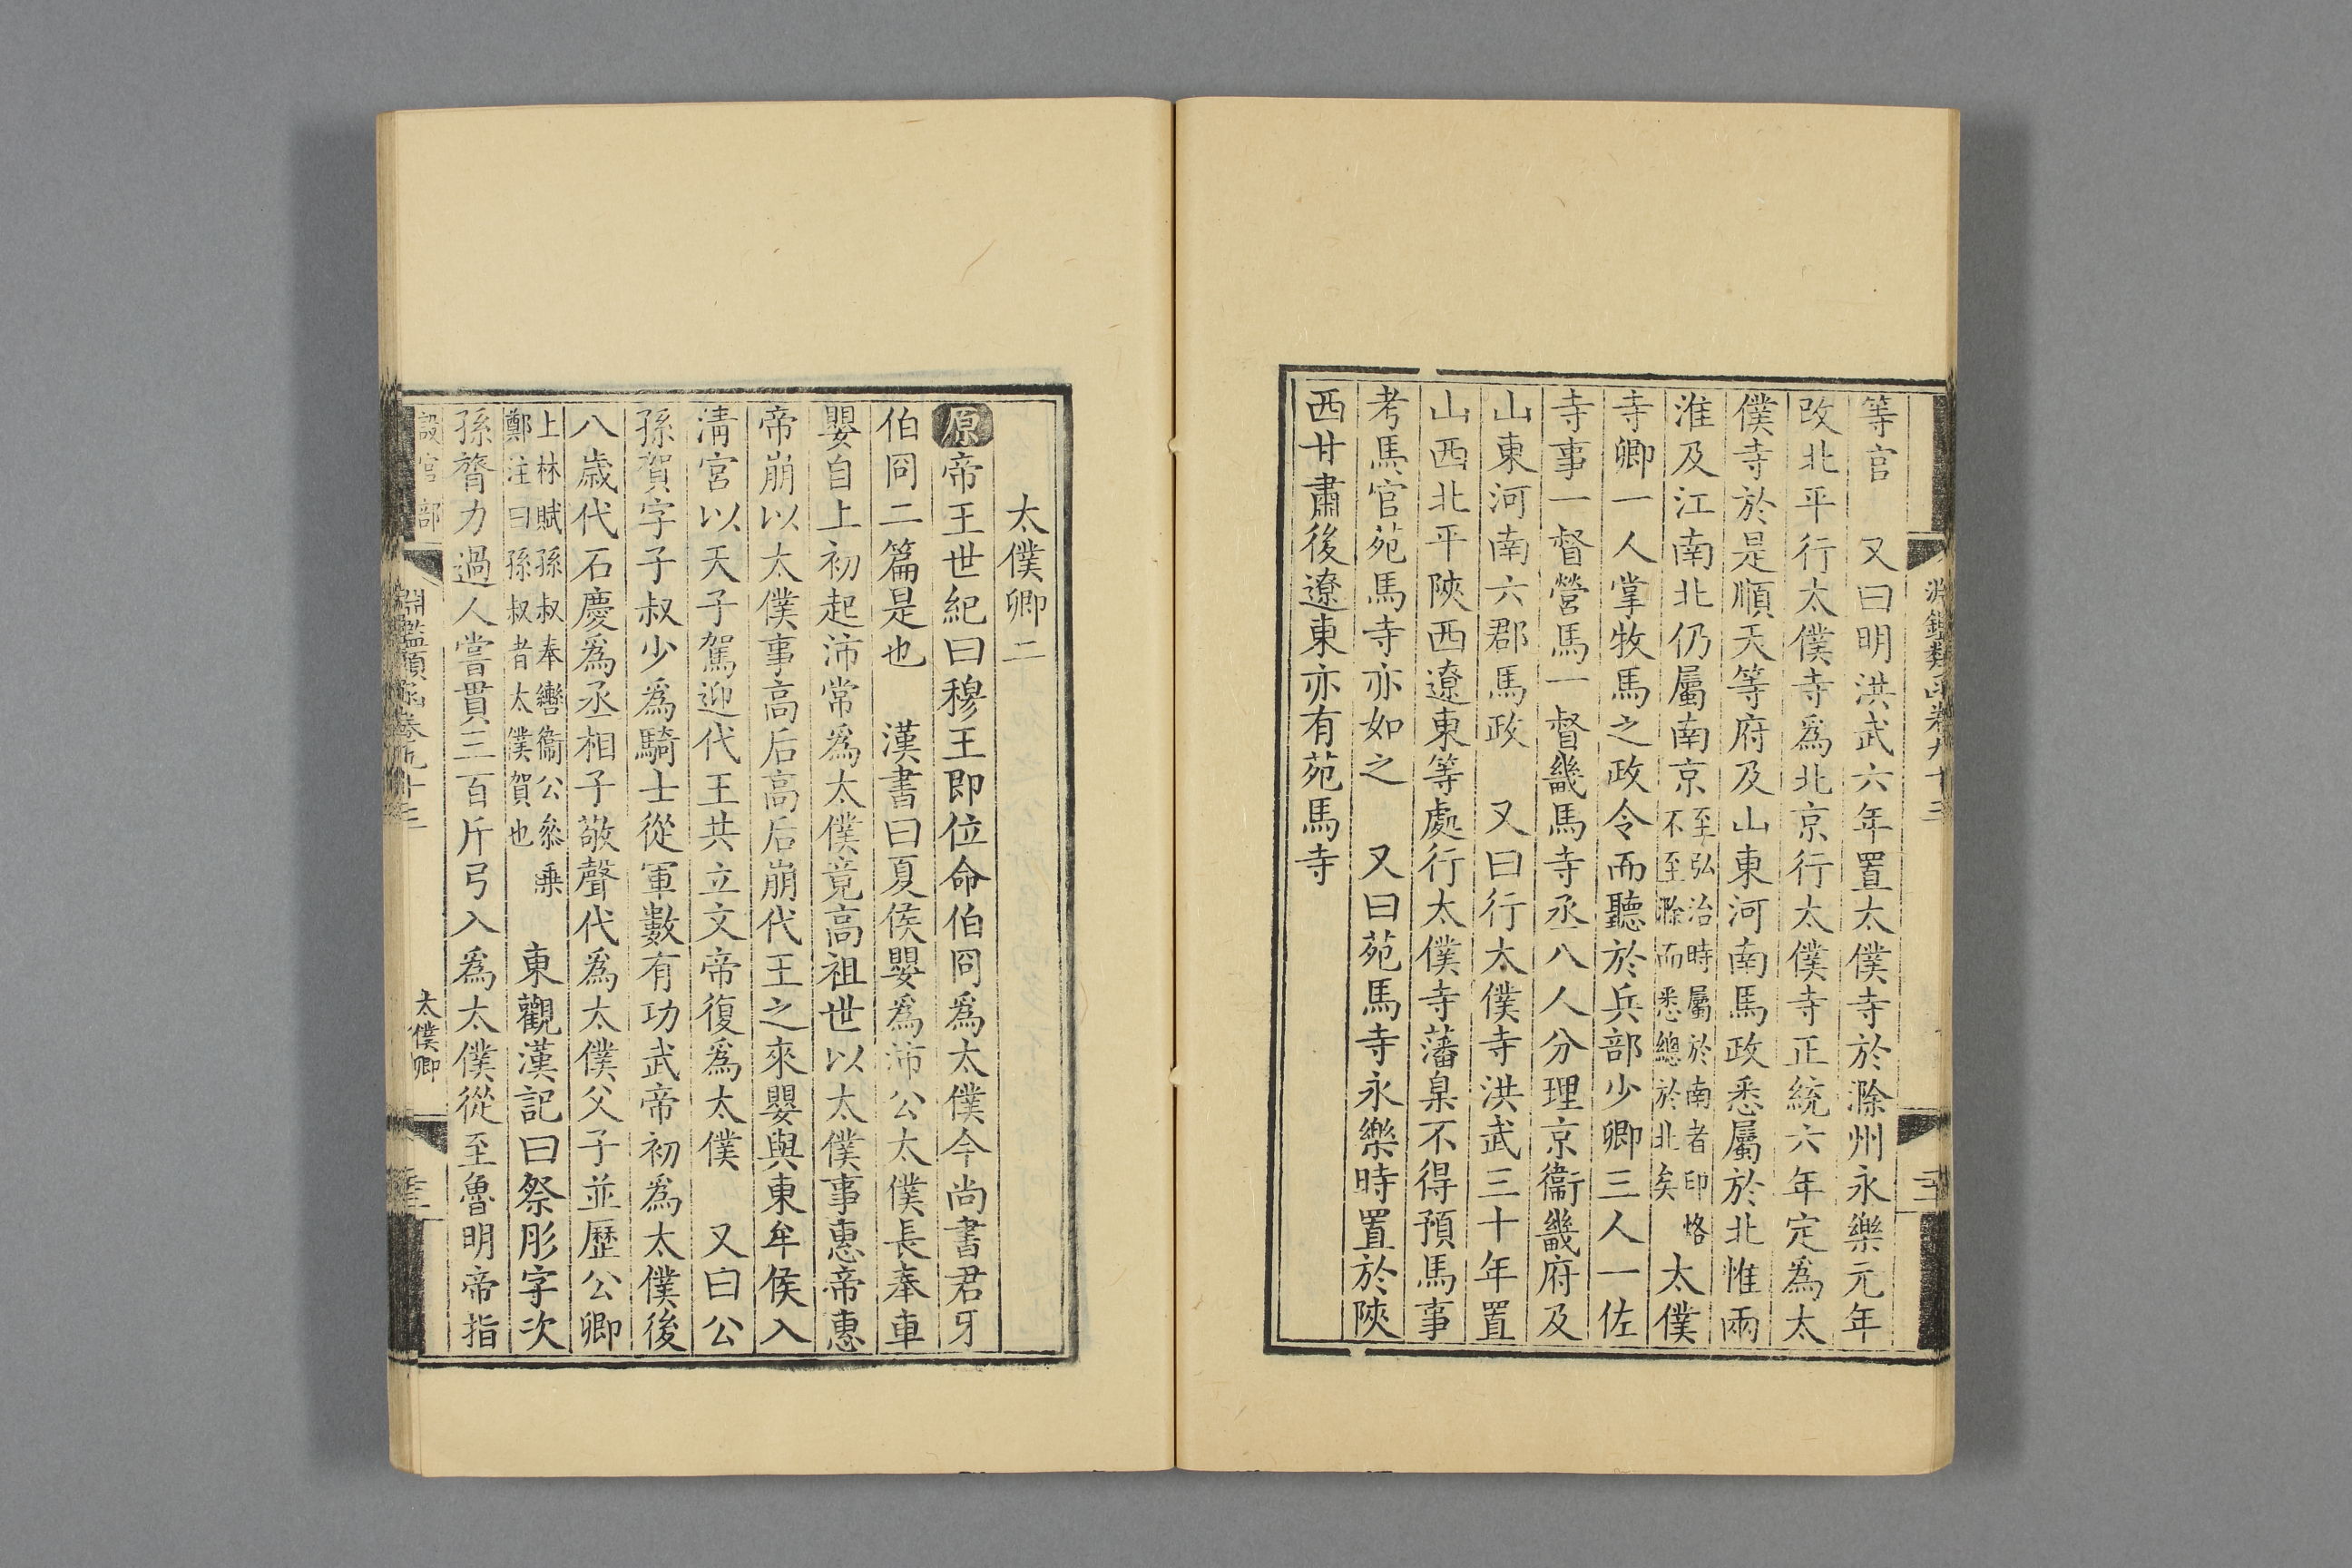 等官　又曰明洪武六年置太僕寺於滁州永樂元年
改北平行太僕寺爲北京行太僕寺正統六年定爲太
僕寺於是順天等府及山東河南馬政悉屬於北惟兩
淮及江南北仍屬南京至弘治時屬於南者印烙不至滁而悉總於北矣太僕
寺卿一人掌牧馬之政令而聽於兵部少卿三人一佐
寺事一督營馬一督畿馬寺丞八人分理京衞畿府及
山東河南六郡馬政　又曰行太僕寺洪武三十年置
山西北平陝西遼東等處行太僕寺藩臬不得預馬事
考馬官苑馬寺亦如之　又曰苑馬寺永樂時置於陝
西甘肅後遼東亦有苑馬寺
太僕卿二
原帝王世紀曰穆王即位命伯冏爲太僕今尚書君牙
伯冏二篇是也　漢書曰夏侯嬰爲沛公太僕長奉車
嬰自上初起沛常爲太僕竟高祖世以太僕事惠帝惠
帝崩以太僕事高后高后崩代王之來嬰與東牟侯入
清宮以天子駕迎代王共立文帝復爲太僕　又曰公
孫賀字子叔少爲騎士從軍數有功武帝初爲太僕後
八歲代石慶爲丞相子敬聲代爲太僕父子並歷公卿
上林賦孫叔奉轡衞公叅乗鄭注曰孫叔者太僕賀也　東觀漢記曰祭肜字次
孫膂力過人嘗貫三百斤弓入爲太僕從至魯明帝指
設官部
淵鑑類函卷九十三
太僕卿